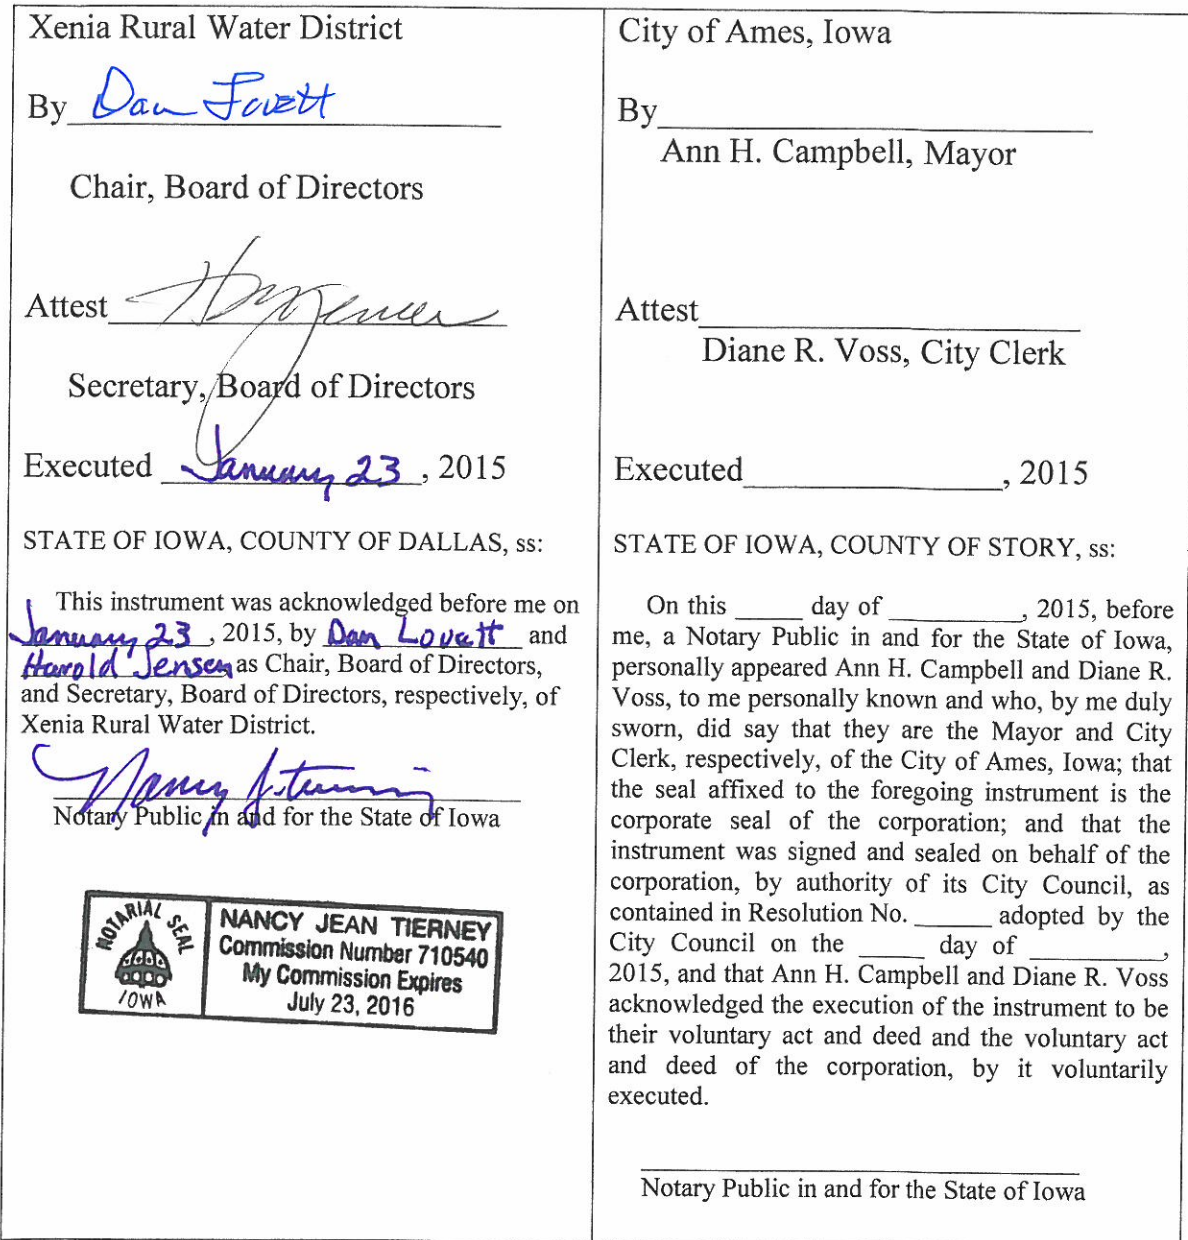 Xenia Rural Water District
By Dan Lovett
Chair, Board of Directors
Attest
Secretary, Board of Directors
Executed January 23, 2015
STATE OF IOWA, COUNTY OF DALLAS, ss:
This instrument was acknowledged before me on
January 23, 2015, by Dan Lovett and
Harold Jensen as Chair, Board of Directors,
and Secretary, Board of Directors, respectively, of
Xenia Rural Water District.
Notary Public in and for the State of Iowa
NOTARIAL SEAL
IOWA
NANCY JEAN TIERNEY
Commission Number 710540
My Commission Expires
July 23, 2016
City of Ames, Iowa
By
Ann H. Campbell, Mayor
Attest
Diane R. Voss, City Clerk
Executed, 2015
STATE OF IOWA, COUNTY OF STORY, ss:
On this _____ day of __________, 2015, before
me, a Notary Public in and for the State of Iowa,
personally appeared Ann H. Campbell and Diane R.
Voss, to me personally known and who, by me duly
sworn, did say that they are the Mayor and City
Clerk, respectively, of the City of Ames, Iowa; that
the seal affixed to the foregoing instrument is the
corporate seal of the corporation; and that the
instrument was signed and sealed on behalf of the
corporation, by authority of its City Council, as
contained in Resolution No. ______ adopted by the
City Council on the _____ day of __________,
2015, and that Ann H. Campbell and Diane R. Voss
acknowledged the execution of the instrument to be
their voluntary act and deed and the voluntary act
and deed of the corporation, by it voluntarily
executed.
Notary Public in and for the State of Iowa